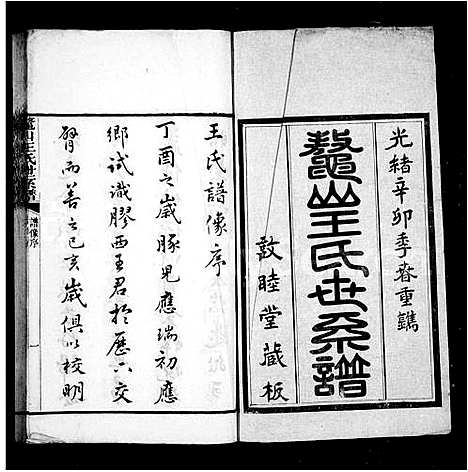 光緒辛卯季春重鐫
鼇山王氏世系譜
敦睦堂藏板
王氏譜像序
丁酉之歲豚兒應瑞初應
鄉試識膠西王君於歷下交
臂而善之己亥歲俱以校明
鼇山王氏世系譜
譜像序
一